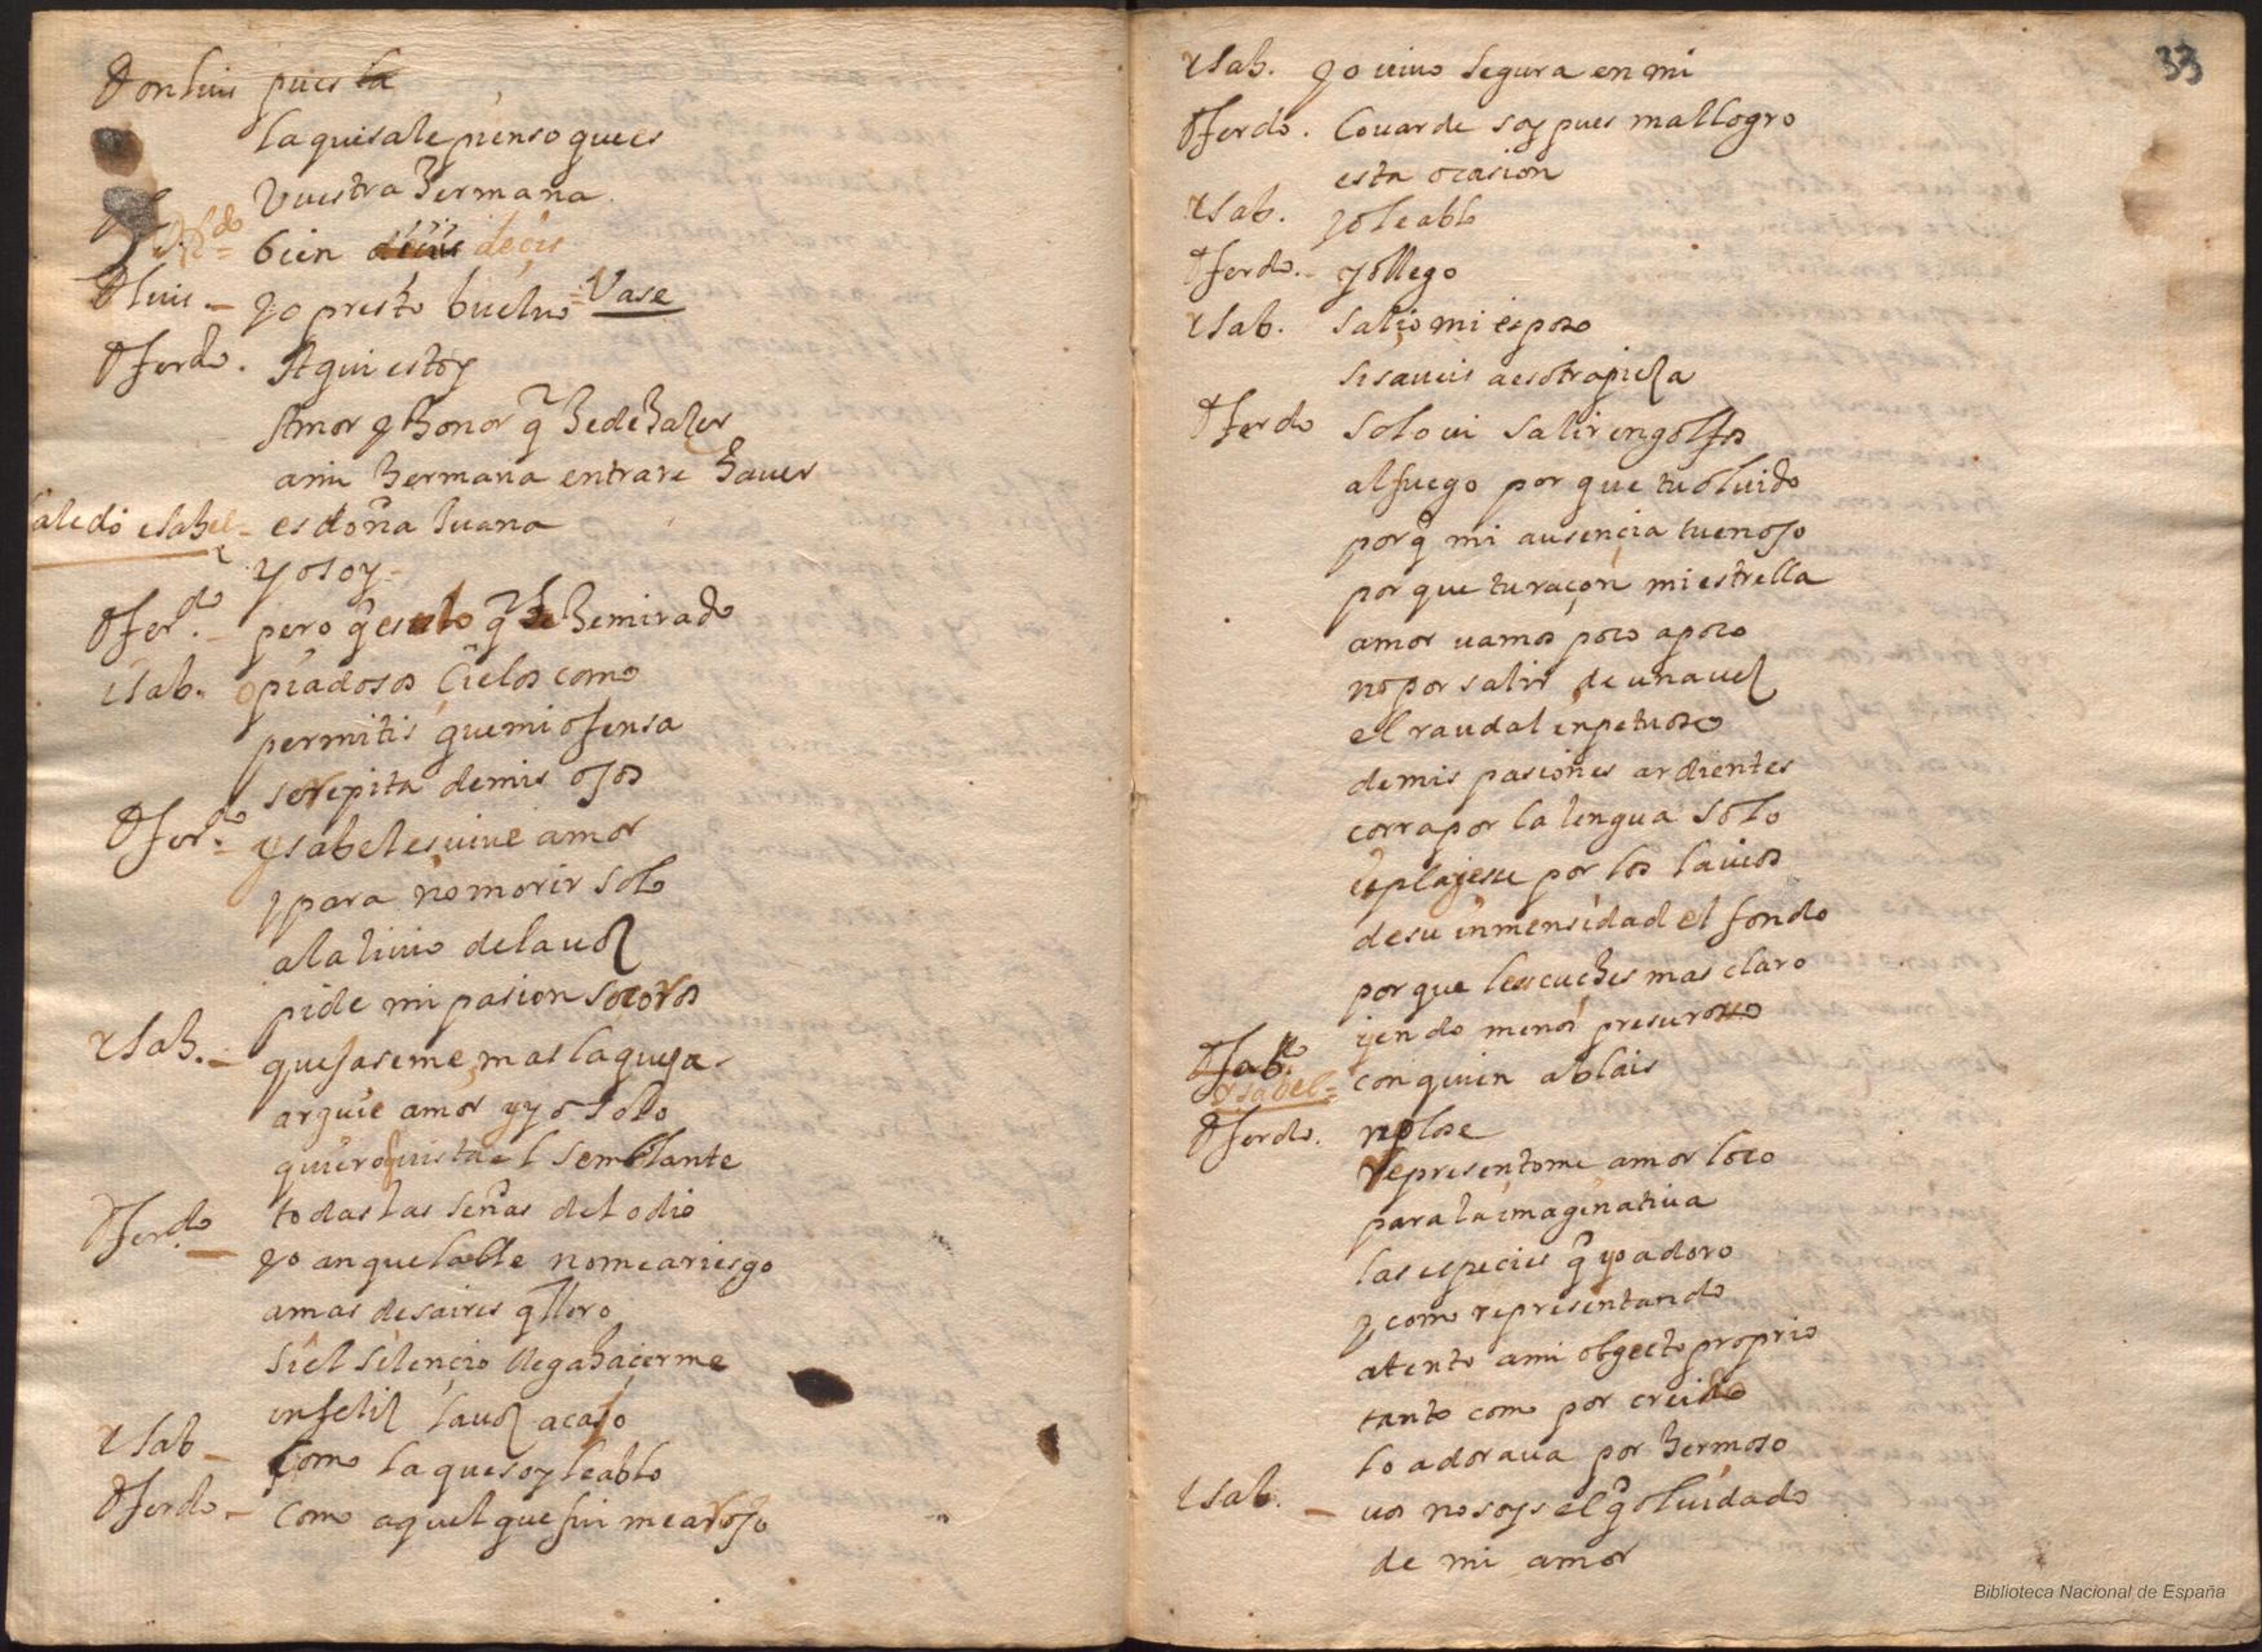 Don luis pues la
la quisale pienso que es
Vuestra hermana
bien decis
D luis - yo presto buelvo = Vase
D ferdo. Aqui estoy
Amor y honor q̃ he de haçer
a mi hermana entrare haver
Sale dª isabel - es doña Juana
yo soy =
D ferdo. - pero q̃ es esto q̃ he mirado
isab. o piadosos Cielos como
permitis que mi ofensa
se repita de mis ojos
D ferdo. = ysabel es vive amor
y para no morir solo
al alivio de la uoz
pide mi pasion socoros
ysab. - quejaseme mas la queja
arguie amor y yo solo
quiero q vista el semblante
todas las señas del odio
D ferdo - yo aunque la able no me ariesgo
a mas desaires q̃ lloro
si el silencio llega haçerme
infeliz la uoz acaso
ysab - Como la que soy le ablo
D ferdo - Como aquel que fui me arojo
33
ysab. yo vivo segura en mi
D ferdo. Couarde soy pues mallogro
esta ocasion
ysab. yo le ablo
D ferdo. - yo llego
ysab. salio mi esposo
si saueis a esotra pieza
D ferdo solo ui salir en golfos
al fuego por que tu oluido
por q̃ mi ausencia tu enojo
por que tu raçon mi estrella
amor uamos poco a poco
no por salir de una uez
el raudal inpetuoso
de mis pasiones ardientes
corra por la lengua solo
esplayese por los lauios
de su inmensidad el fondo
por que le escuches mas claro
yendo menos presuroso
ysabel = con quien ablais
D ferdo. no lo se
representome amor loco
para la imaginatiua
las especies q̃ yo adoro
y como representando
atento a mi obgecto proprio
tanto como por creido
lo adoraua por hermoso
ysab. - uos no soys el q̃ oluidado
de mi amor
Biblioteca Nacional de España